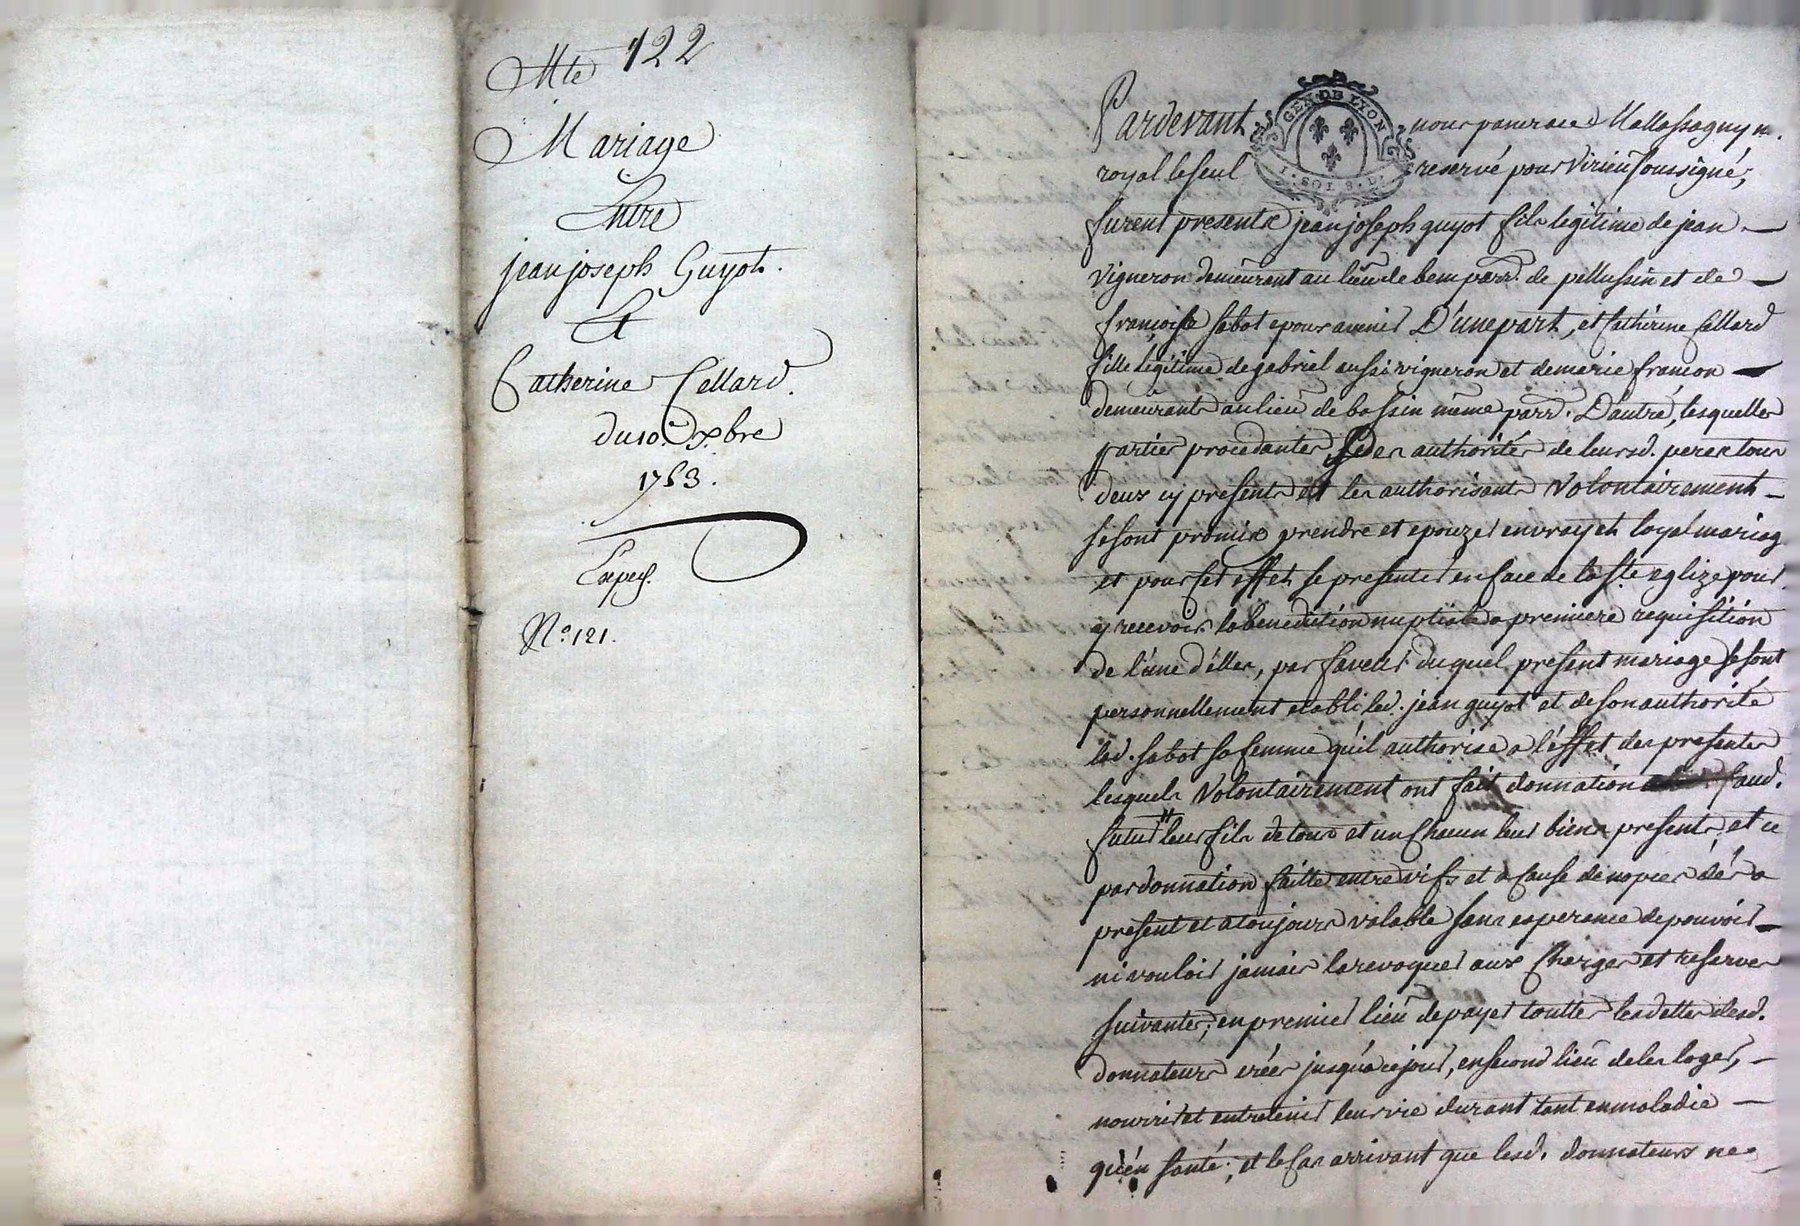 Mte 122
Mariage
Entre
jean joseph Guyot.
Et
Catherine Cellard.
du 10.e Xbre
1763.
Expex.
N.o 121.
GEN. DE LYON
1. SOL 8. D.
Pardevant nous pancrace Mallassagny n.re
royal le seul reservé pour Virieu soussigné,
furent presents jean joseph guyot fils legitime de jean
Vigneron demeurant au lieu de bem parr. de pellussin et de
francoise sabot epoux avenir D'une part, et Catherine Cellard
fille legitime de gabriel aussi vigneron et de marie francon
demeurants au lieu de bossin même parr. D'autre, lesquelles
parties procedantes des authorités de leursd. peres tous
deux cy presents et les authorisants Volontairement
se sont promis prendre et epouzer en vray et loyal mariag
et pour cet effet se presenter en face de la ste eglize pour
y recevoir la benediction nuptiale a premiere requisition
de l'une d'elles, par faveur du quel present mariage se sont
personnellement etabli led. jean guyot et de son authorité
lad. sabot sa femme qu'il authorise a l'effet des presentes
lesquels Volontairement ont fait donnation aud.
futur leur fils de tous et un chacun leur biens presents, et ce
par donnation faitte entre vifs et a cause de nopces dés a
present et a toujours valable sans esperance de pouvoir
ni vouloir jamais la revoquer aux Charges et reserves
suivantes; en premier lieu de payer touttes les dettes desd.
donnateurs créés jusqu'a ce jour, en second lieu de les loger,
nourrir et entretenir leur vie durant tant en maladie
qu'en santé; et le cas arrivant que lesd. donnateurs ne